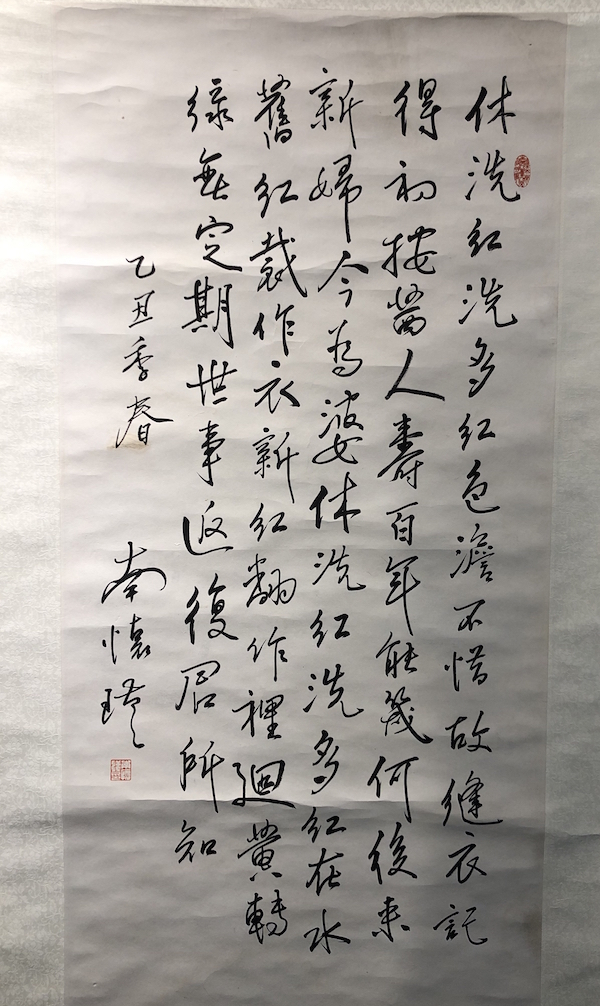 休洗紅洗多紅色澹不惜故縫衣記
得初按茜人壽百年能幾何後来
新婦今為婆休洗紅洗多紅在水
舊紅裁作衣新紅翻作裡迴黄轉
緑無定期世事返復君所知
乙丑季春
南懷瑾